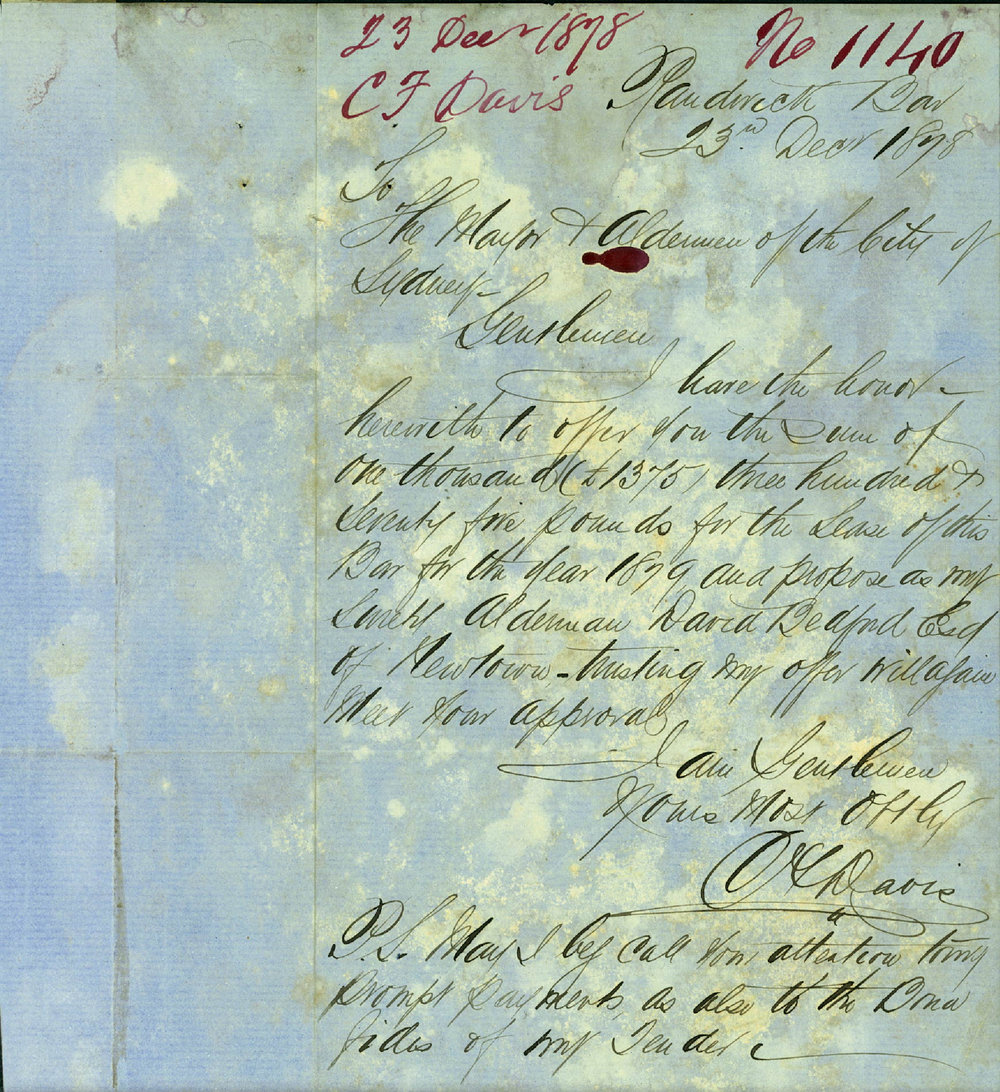 23 Decr 1878 No 1140
C F Davis
Randwick Bar
23rd Decr 1878
To
The Mayor & Aldermen of the City of
Sydney—
Gentlemen
I have the honor—
herewith to offer you the Sum of
one thousand (£1375) three hundred &
Seventy five pounds for the Lease of this
Bar for the year 1879 and propose as my
Surety Alderman David Bedford Esq
of Newtown—trusting my offer will again
Meet your approval
I am Gentlemen
Yours Most Obtly
C F Davis
P.S. May I beg call your attention to my
prompt payments, as also to the Bona
fides of my Tender